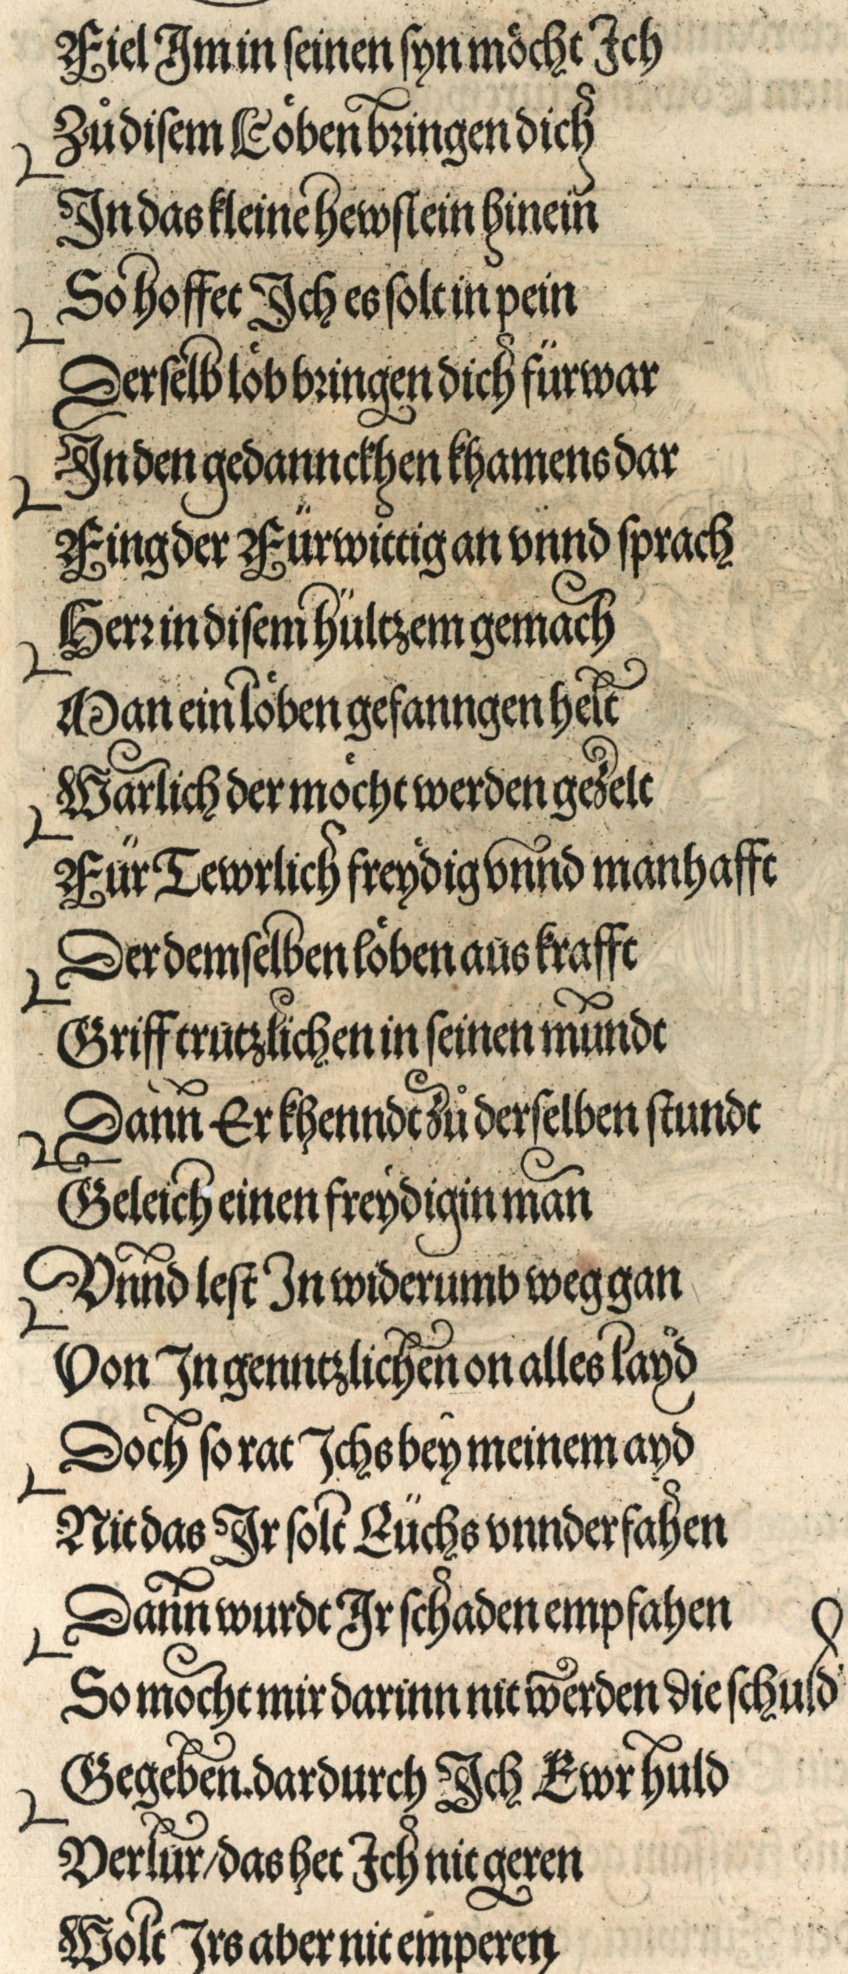 Fiel Im in seinen syn möcht Ich
Zů disem Löben bringen dich
In das kleine hewslein hinein
So hoffet Ich es solt in pein
Derselb löb bringen dich fürwar
In den gedannckhen khamens dar
Fing der Fürwittig an vnnd sprach
Herr in disem hültzem gemach
Man ein löben gefanngen helt
Warlich der möcht werden gezelt
Für Tewrlich freydig vnnd manhafft
Der demselben löben aus krafft
Griff trutzlichen in seinen mundt
Dann Er khenndt zů derselben stundt
Geleich einen freydigin man
Vnnd lest In widerumb weg gan
Von In genntzlichen on alles layd
Doch so rat Ichs bey meinem ayd
Nit das Ir solt Eüchs vnnderfahen
Dann wurdt Ir schaden empfahen
So mocht mir darinn nit werden die schuld
Gegeben. dardurch Ich Ewr huld
Verlur/das het Ich nit geren
Wolt Irs aber nit emperen